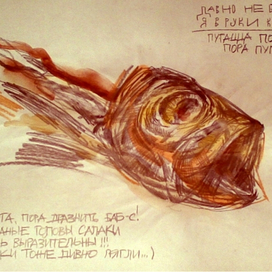 ДАВНО НЕ
Я В РУКИ
ПУГАЦЦА ПО
ПОРА ПУГ
ТА, ПОРА ДРАЗНИТЬ БАБ-С!
НЫЕ ГОЛОВЫ САЛАКИ
Ь ВЫРАЗИТЕЛЬНЫ!!!
КИ ТОЖЕ ДИВНО ЛЯГЛИ...)